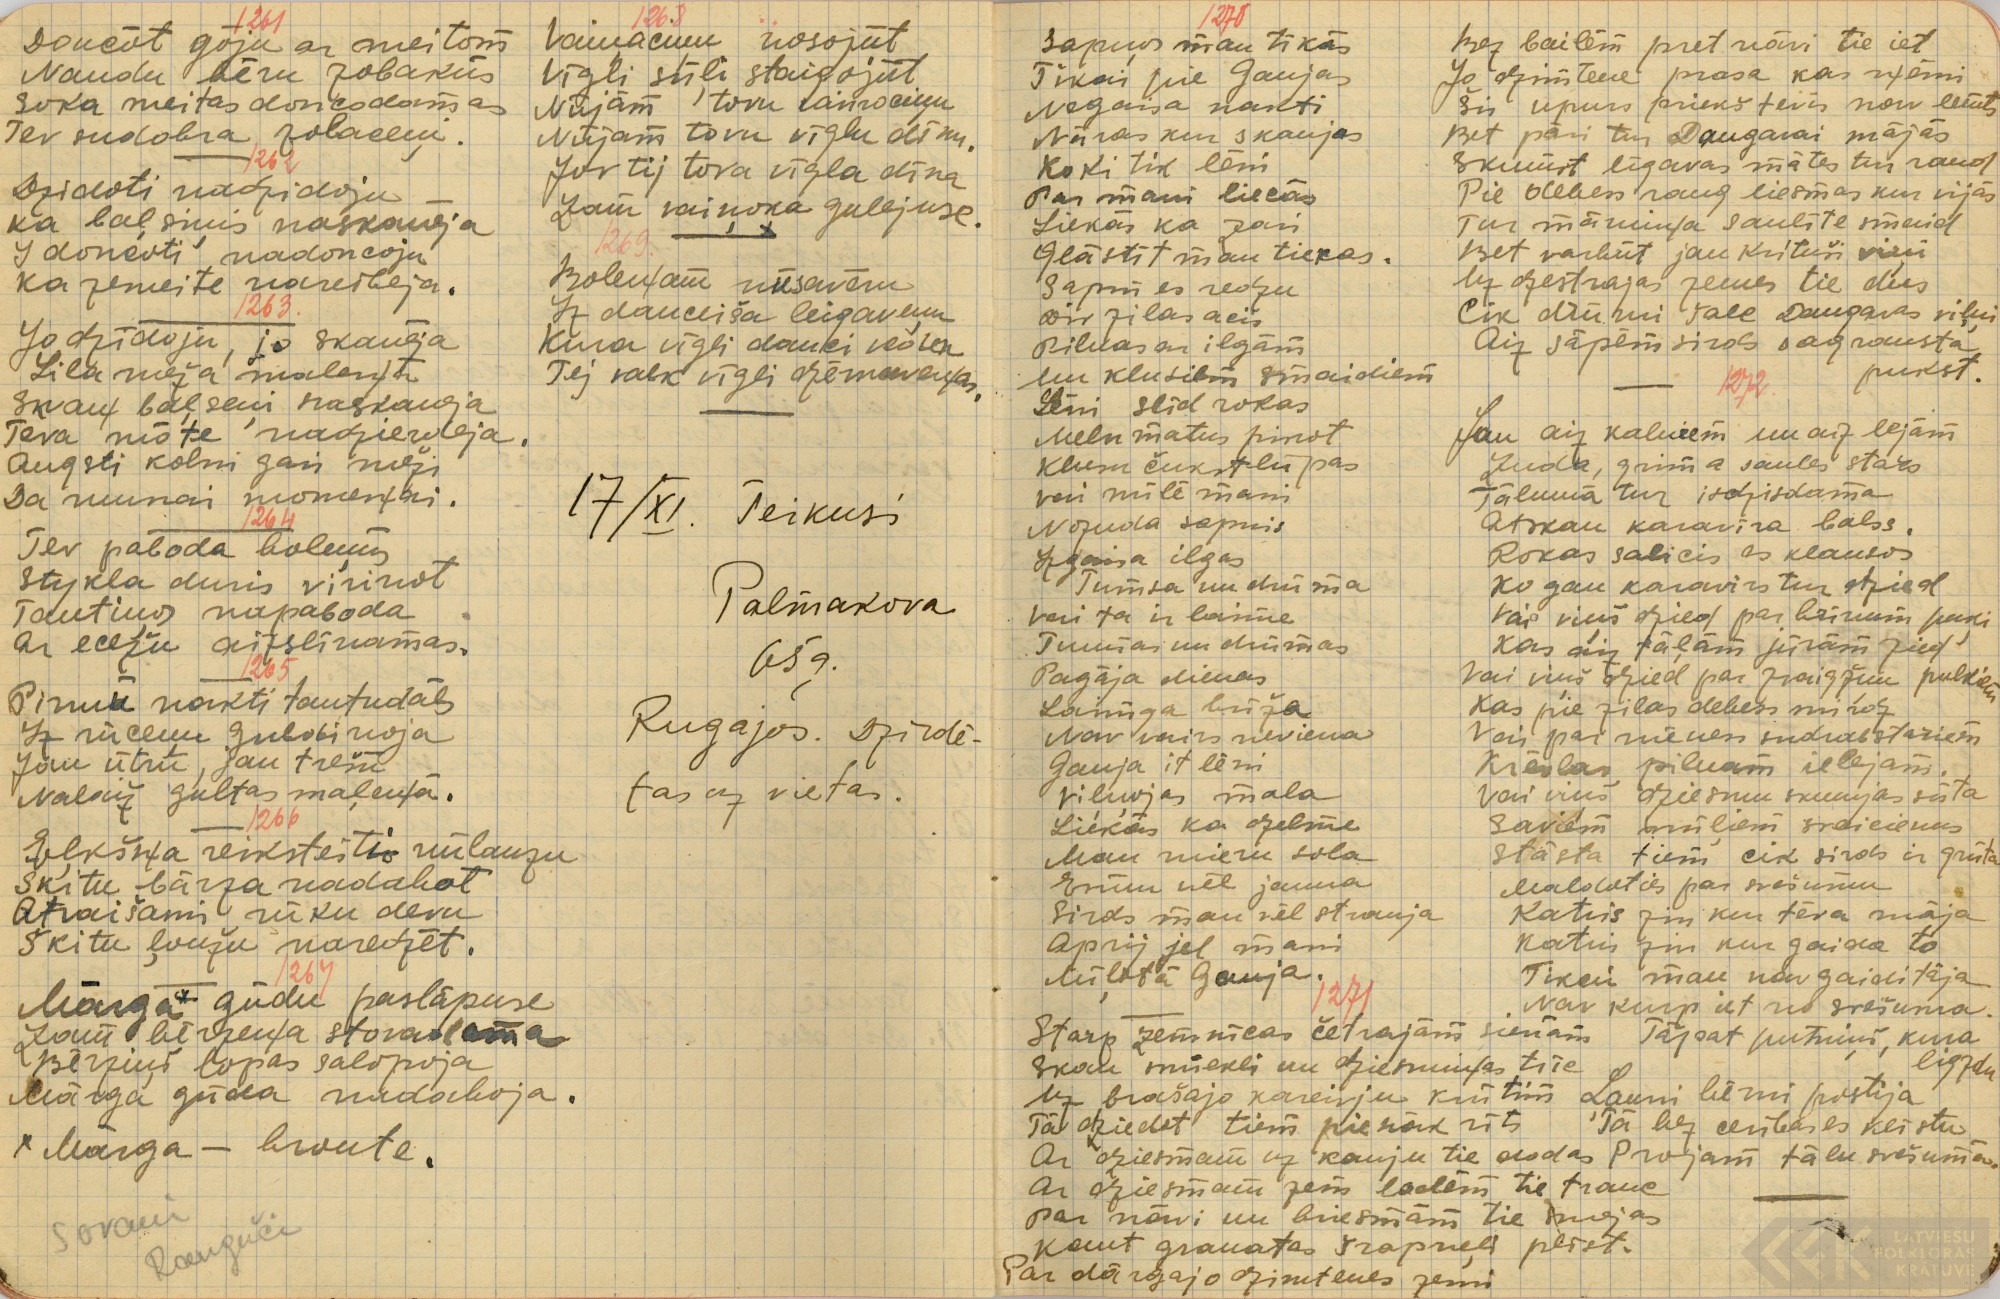 1261
Doncōt gōju ar meitom
Naudu bēru zobakūs
Soka meitas doncodamas
Tev sudobra zobaceņi.
1262
Dzīdoti nadzīdoju
Ka baļsinis naskaneja
I doncoti nadoncoju
Ka zemeite nareibēja.
1263.
Jo dzīdoju, jo skanēja
Lila meža maleņā
Skaņ baļseni naskaneja
Teva mōte nadzierdeja.
Augsti kolni gari meži
Da munai momeņai.
1264
Tev paboda boleņis
Stykla duris virinot
Tautiņos napaboda
Ar ecežu aizslinamas.
1265
Pirmū nakti tautudāls
Iz rūceņu guldinoja
Jau ūtrū, jau trešū
Nalaiž gultas maļeņā.
1266
Eļkšņa reiksteiti nūlauzu
Škitu bārza nadabot
Atraišami rūku devu
Škitu ļoužu naredzēt.
1267
Mārga* gūdu paslāpuse
Zam bērzeņa stovadama
Bērziņš lopas salopoja
Mārga gūda nadaboja.
x Mārga — broute.
Sovani
Ranguči
1268
Vainaceņu nosojūt
Vigli sūļi staigojūt
Nūjām tovu vainaceņu
Nūjam tovu vīglu dīnu.
Jov tij tova vīgla dīna
Zam vaiņoka gulejuse.
1269.
Boleņam nūsavēru
Iz daucieša leigaveņu
Kura vīgli dauci vōlen
Tej vaļk vīgli dzērnaveņas.
17/XI. Teikusi
Palmakova
65 g.
Rugājos. Dzirdē-
tas uz vietas.
1270
Sapnis man tikās
Tikai pie Gaujas
Negaisa nakti
Nāras kur skaujas
Koki tik lēni
Par mani liecās
Liekās ka zari
Glāstīt man tiekas.
Sapnī es redzu
Div zilas acis
Pilnas ar ilgām
un klusiem smaidiem
Lēni slīd rokas
Melnmatus pinot
Klusu čukst lūpas
vai mīlē mani
Nozuda sapnis
Izgaisa ilgas
Tumsa un drūma
Vai tā ir laime
Tumšas un drūmas
Pagāja dienas
Laimīga brīža
Nav vairs neviena
Gauja it lēni
Viļņojas mala
Liekās ka dzelme
Man mieru sola
Esmu vēl jauna
Sirds man vēl strauja
Aprij jel mani
Mīļotā Gauja.
1271
Starp zemnīcas četrajām sienām
Skan smiekli un dziesmiņas trīc
Uz brašajo kareivju krūtīm
Tā dziedot tiem pienāk rīts
Ar dziesmām uz kauju tie dodas
Ar dziesmām zem lodēm tie trauc
Par nāvi un briesmām tie smejas
Kaut granatas šrapneļi plīst.
Par dārgajo dzimtenes zemi
Bez bailēm pret nāvi tie iet
Jo dzimtene prasa kas ņēmi
Šis upurs priekš tevis nav lemts
Bet pāri tur Daugavai mājās
Skumst līgavas mātes tur raud
Pie debess raug liesmas kur vijās
Tur māmiņa saulīte smaid
Bet varbūt jau krituši viņi
Uz dzestrajas zemes tie dus
Cik drūmi šalc Daugavas viļņi
Aiz sāpēm sirds sagrausta
pukst.
1272.
Jau aiz kalniem un aiz lejām
Zuda, grima saules stars
Tālumā tur izdzisdama
Atskan karavīra balss.
Rokas salicis es klausos
Ko gan karavīrs tur dzied
Vai viņš dzied par brīnum puķi
Kas aiz tālām jūrām zied
Vai viņš dzied par zvaigžņu pulkiem
Kas pie zilas debess mirdz
Vai par mēness sudrabstariem
Krēslas pilnam ielejām.
Vai viņš dziesmu skumjas sūta
Saviem mīļiem sveicienus
Stāsta tiem cik sirds ir grūta
Maldoties par svešumu
Katris zin kur tēva māja
Katris zin kur gaida to
Tikai man nav gaidītāja
Nav kurp iet no svešuma.
Tāpat putniņš, kura
ligzdu
Ļauni bērni postīja
Tā bez cerības es klīstu
Projām tālu svešumā.
LATVIEŠU
FOLKLORAS
KRĀTUVE